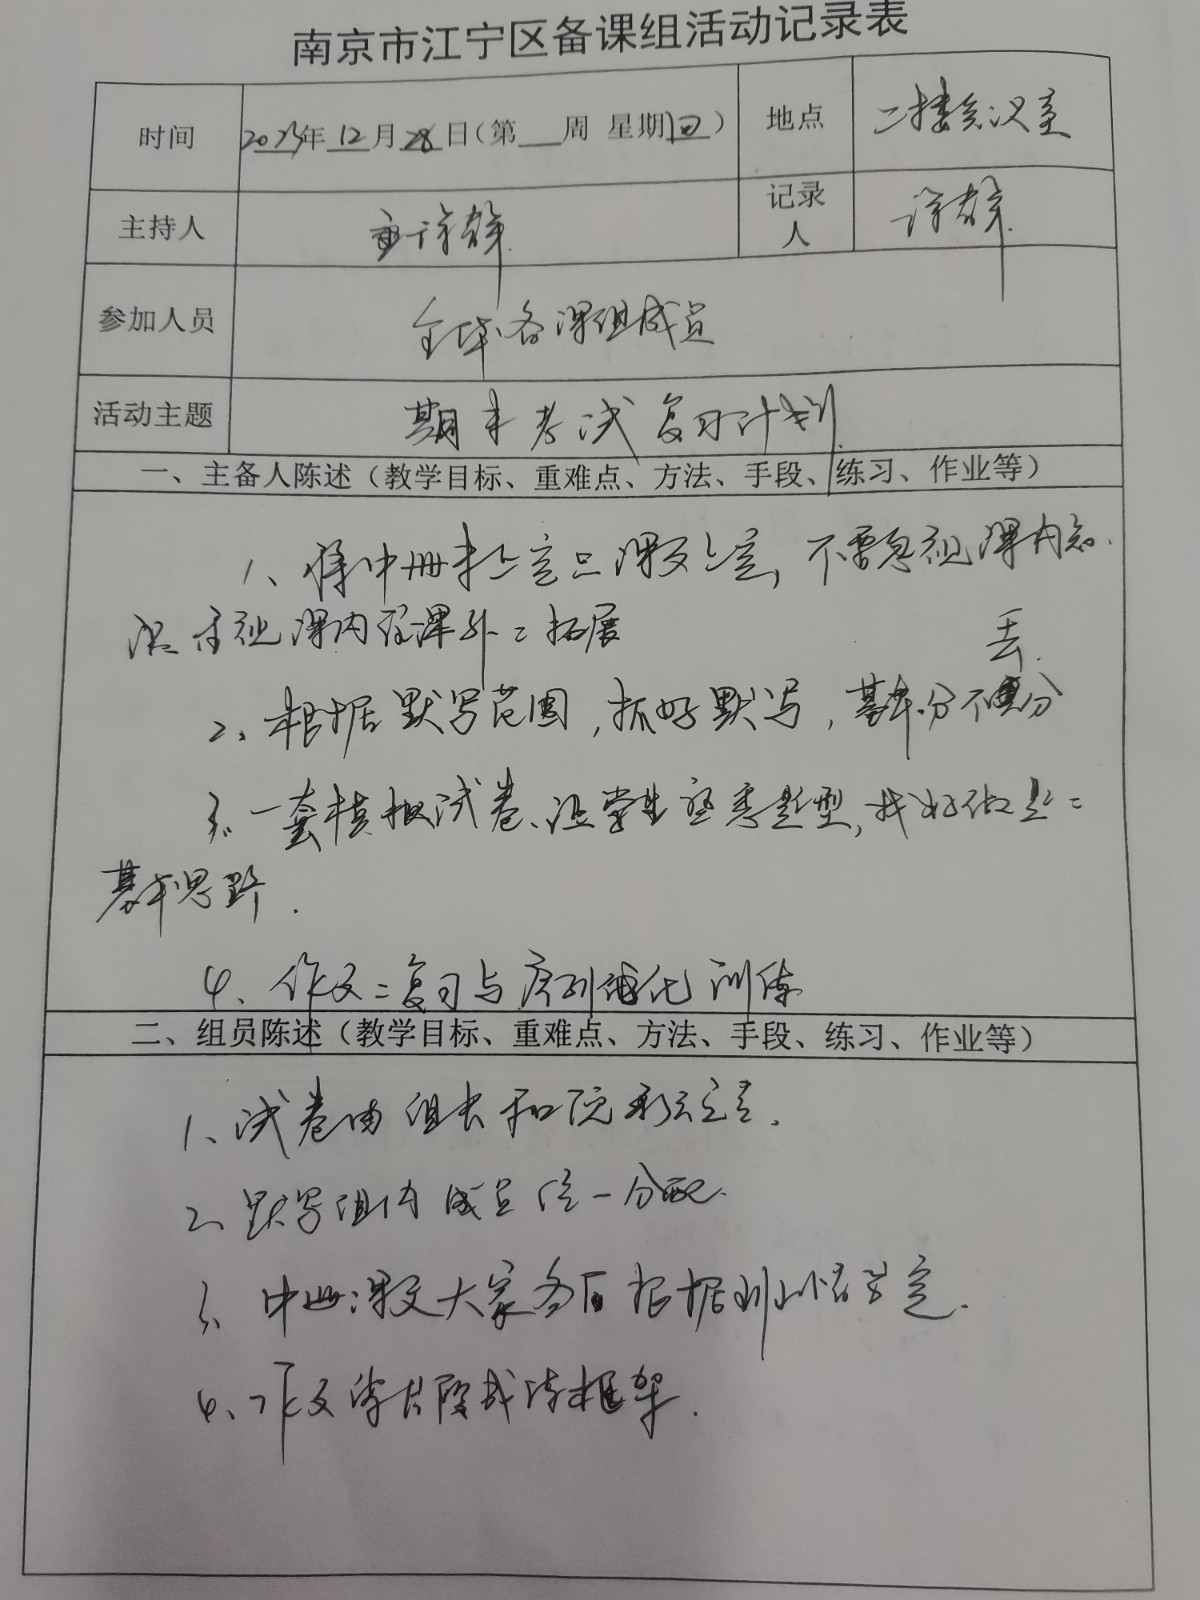 南京市江宁区备课组活动记录表
时间 2023年12月28日(第 周 星期四) 地点 二楼会议室
主持人 许群 记录人 许群
参加人员 全体备课组成员
活动主题 期末考试复习计划
一、主备人陈述(教学目标、重难点、方法、手段、练习、作业等)
课文 不要忽视课内知
识 重视课内 课外 拓展
2、根据默写范围,抓好默写,基本分不丢分
3、一套模拟试卷、让学生熟悉题型,找好做题
基本思路.
4、作文 复习与序列强化训练
二、组员陈述(教学目标、重难点、方法、手段、练习、作业等)
1、试卷由组长和
2、默写组内成员统一分配.
3、 课文大家各自根据
4、作文 框架.